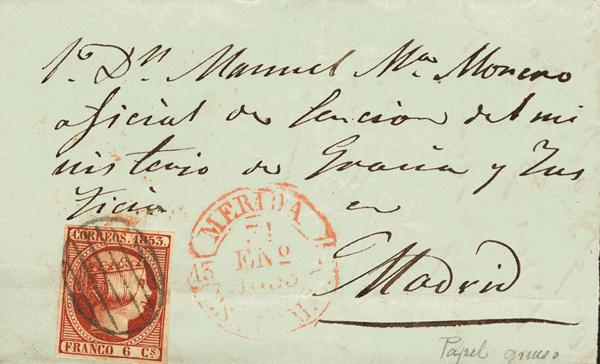 Sr. Dn. Manuel Ma. Moreno
oficial de Seccion del mi
nisterio de Gracia y Jus
ticia en
Madrid
MERIDA
ENº
CORREOS. 1853.
FRANCO 6 Cs
Papel grueso